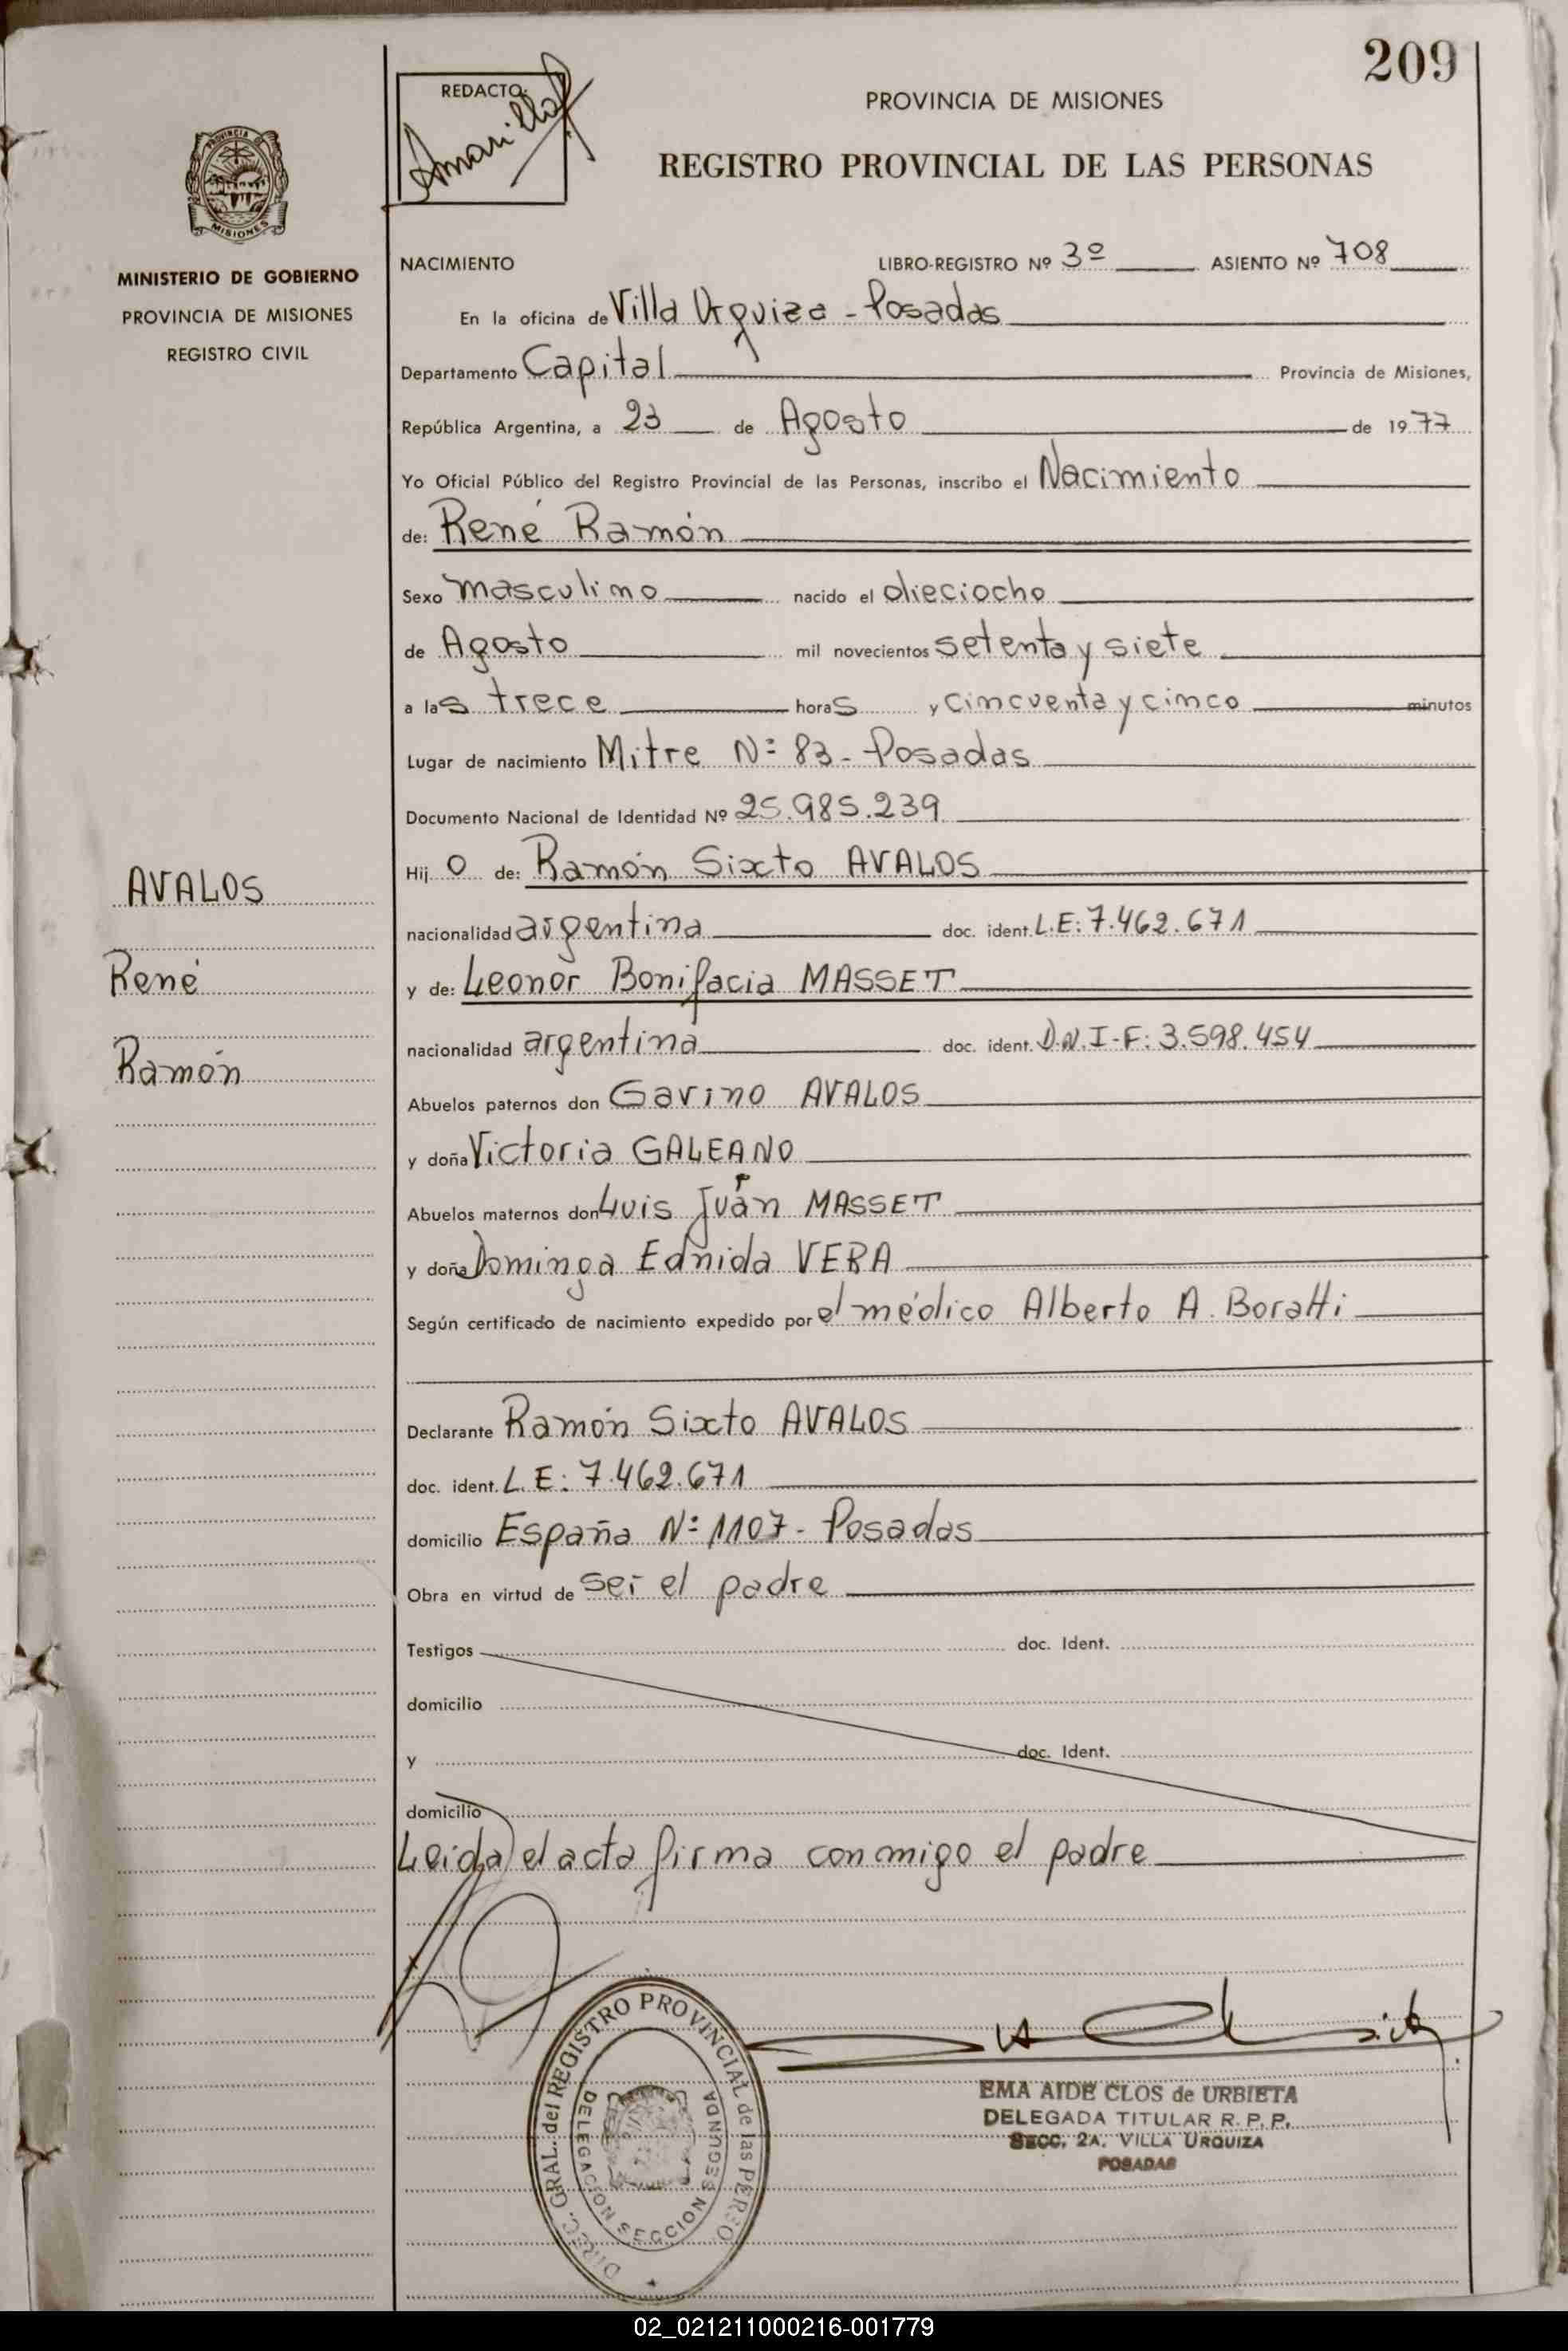 209
REDACTO:
Amarilla
PROVINCIA DE MISIONES
REGISTRO PROVINCIAL DE LAS PERSONAS
PROVINCIA
MISIONES
MINISTERIO DE GOBIERNO
PROVINCIA DE MISIONES
REGISTRO CIVIL
NACIMIENTO LIBRO-REGISTRO Nº 3º ASIENTO Nº 708
En la oficina de Villa Urquiza - Posadas
Departamento Capital Provincia de Misiones,
República Argentina, a 23 de Agosto de 1977
Yo Oficial Público del Registro Provincial de las Personas, inscribo el Nacimiento
de: René Ramón
Sexo masculino nacido el dieciocho
de Agosto mil novecientos setenta y siete
a las trece horas y cincuenta y cinco minutos
Lugar de nacimiento Mitre Nº 83 - Posadas
Documento Nacional de Identidad Nº 25.985.239
Hijo de: Ramón Sixto AVALOS
AVALOS
nacionalidad argentina doc. ident. L.E: 7.462.671
y de: Leonor Bonifacia MASSET
René
nacionalidad argentina doc. ident. D.N.I-F: 3.598.454
Ramón
Abuelos paternos don Gavino AVALOS
y doña Victoria GALEANO
Abuelos maternos don Luis Juan MASSET
y doña Dominga Ednida VERA
Según certificado de nacimiento expedido por el médico Alberto A. Boratti
Declarante Ramón Sixto AVALOS
doc. ident. L.E: 7.462.671
domicilio España Nº 1107 - Posadas
Obra en virtud de ser el padre
Testigos doc. Ident.
domicilio
y doc. Ident.
domicilio
Leida el acta firma conmigo el padre
DIREC. GRAL. del REGISTRO PROVINCIAL de las PERSO.
DELEGACION SECCION SEGUNDA
EMA AIDE CLOS de URBIETA
DELEGADA TITULAR R. P. P.
SECC. 2A. VILLA URQUIZA
POSADAS
02_021211000216-001779